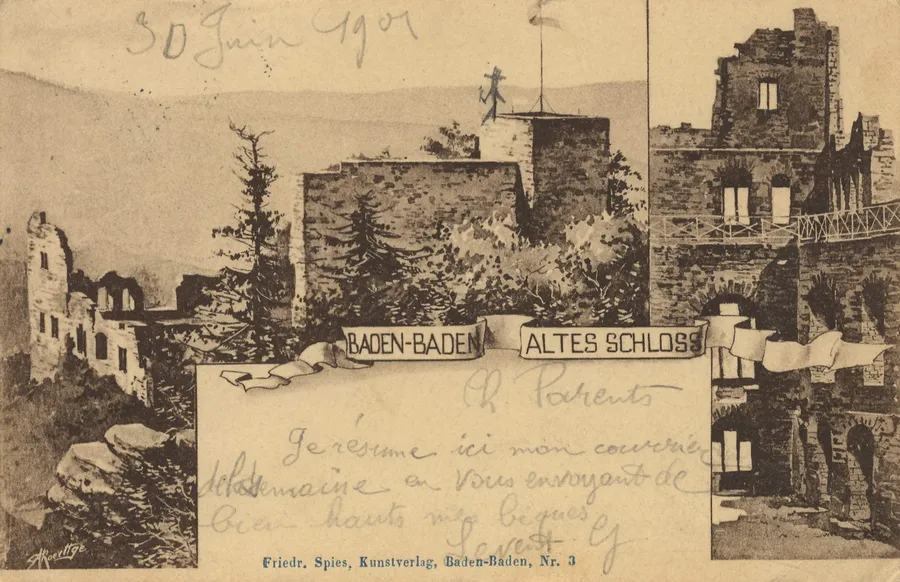 30 Juin 1901
BADEN-BADEN ALTES SCHLOSS
Ch Parents
Je résume ici mon courrier
semaine en vous envoyant de
bien hauts mes
G
Friedr. Spies, Kunstverlag, Baden-Baden, Nr. 3